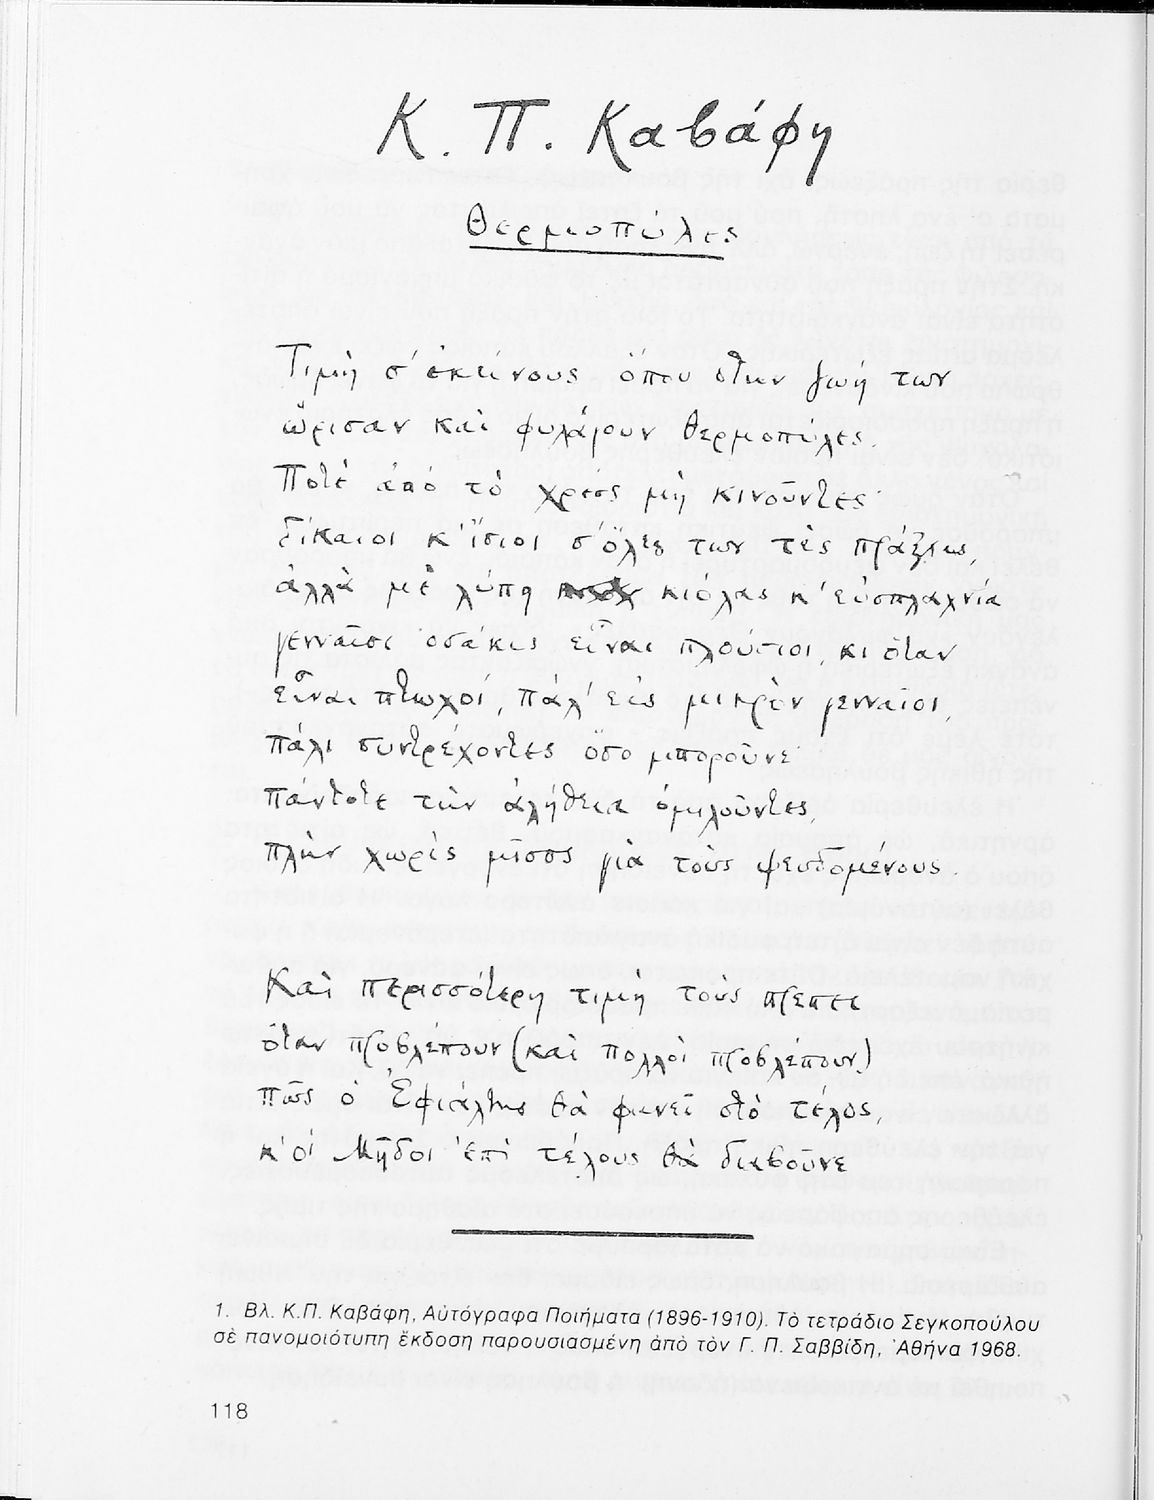 Κ. Π. Καβάφη
Θερμοπύλες
Τιμὴ σ' ἐκείνους ὅπου στὴν ζωή των
ὥρισαν καὶ φυλάγουν Θερμοπύλες.
Ποτὲ ἀπὸ τὸ χρέος μὴ κινοῦντες·
δίκαιοι κ' ἴσιοι σ' ὅλες των τὲς πράξεις,
ἀλλὰ μὲ λύπη κιόλας κ' εὐσπλαχνία
γενναῖοι ὁσάκις εἶναι πλούσιοι, κι ὅταν
εἶναι πτωχοί, πάλ' εἰς μικρὸν γενναῖοι,
πάλι συντρέχοντες ὅσο μποροῦνε·
πάντοτε τὴν ἀλήθεια ὁμιλοῦντες,
πλὴν χωρὶς μῖσος γιὰ τοὺς ψευδομένους.
Καὶ περισσότερη τιμὴ τοὺς πρέπει
ὅταν προβλέπουν (καὶ πολλοὶ προβλέπουν)
πῶς ὁ Ἐφιάλτης θὰ φανεῖ στὸ τέλος,
κ' οἱ Μῆδοι ἐπὶ τέλους θὰ διαβοῦνε
1. Βλ. Κ.Π. Καβάφη, Αὐτόγραφα Ποιήματα (1896-1910). Τὸ τετράδιο Σεγκοπούλου
σὲ πανομοιότυπη ἔκδοση παρουσιασμένη ἀπὸ τὸν Γ. Π. Σαββίδη, Ἀθήνα 1968.
118